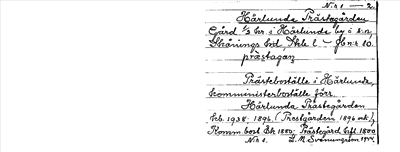 Nr 1 — 2.
Härlunda Prästgården
Gård 1/2 hr. i Härlunda by i s.n,
Skånings hd, Skbl. l — Jb nr 10.
præstagaɳ
Prästeboställe i Härlunda,
komministerboställe förr.
Härlunda Prästgården
Jrb. 1938. 1894. (Prestgården 1896 ork.),
Komm. bost. Ek 1880. Prästgård hfl. 1880
Nr 1. S. M. Svenungsson